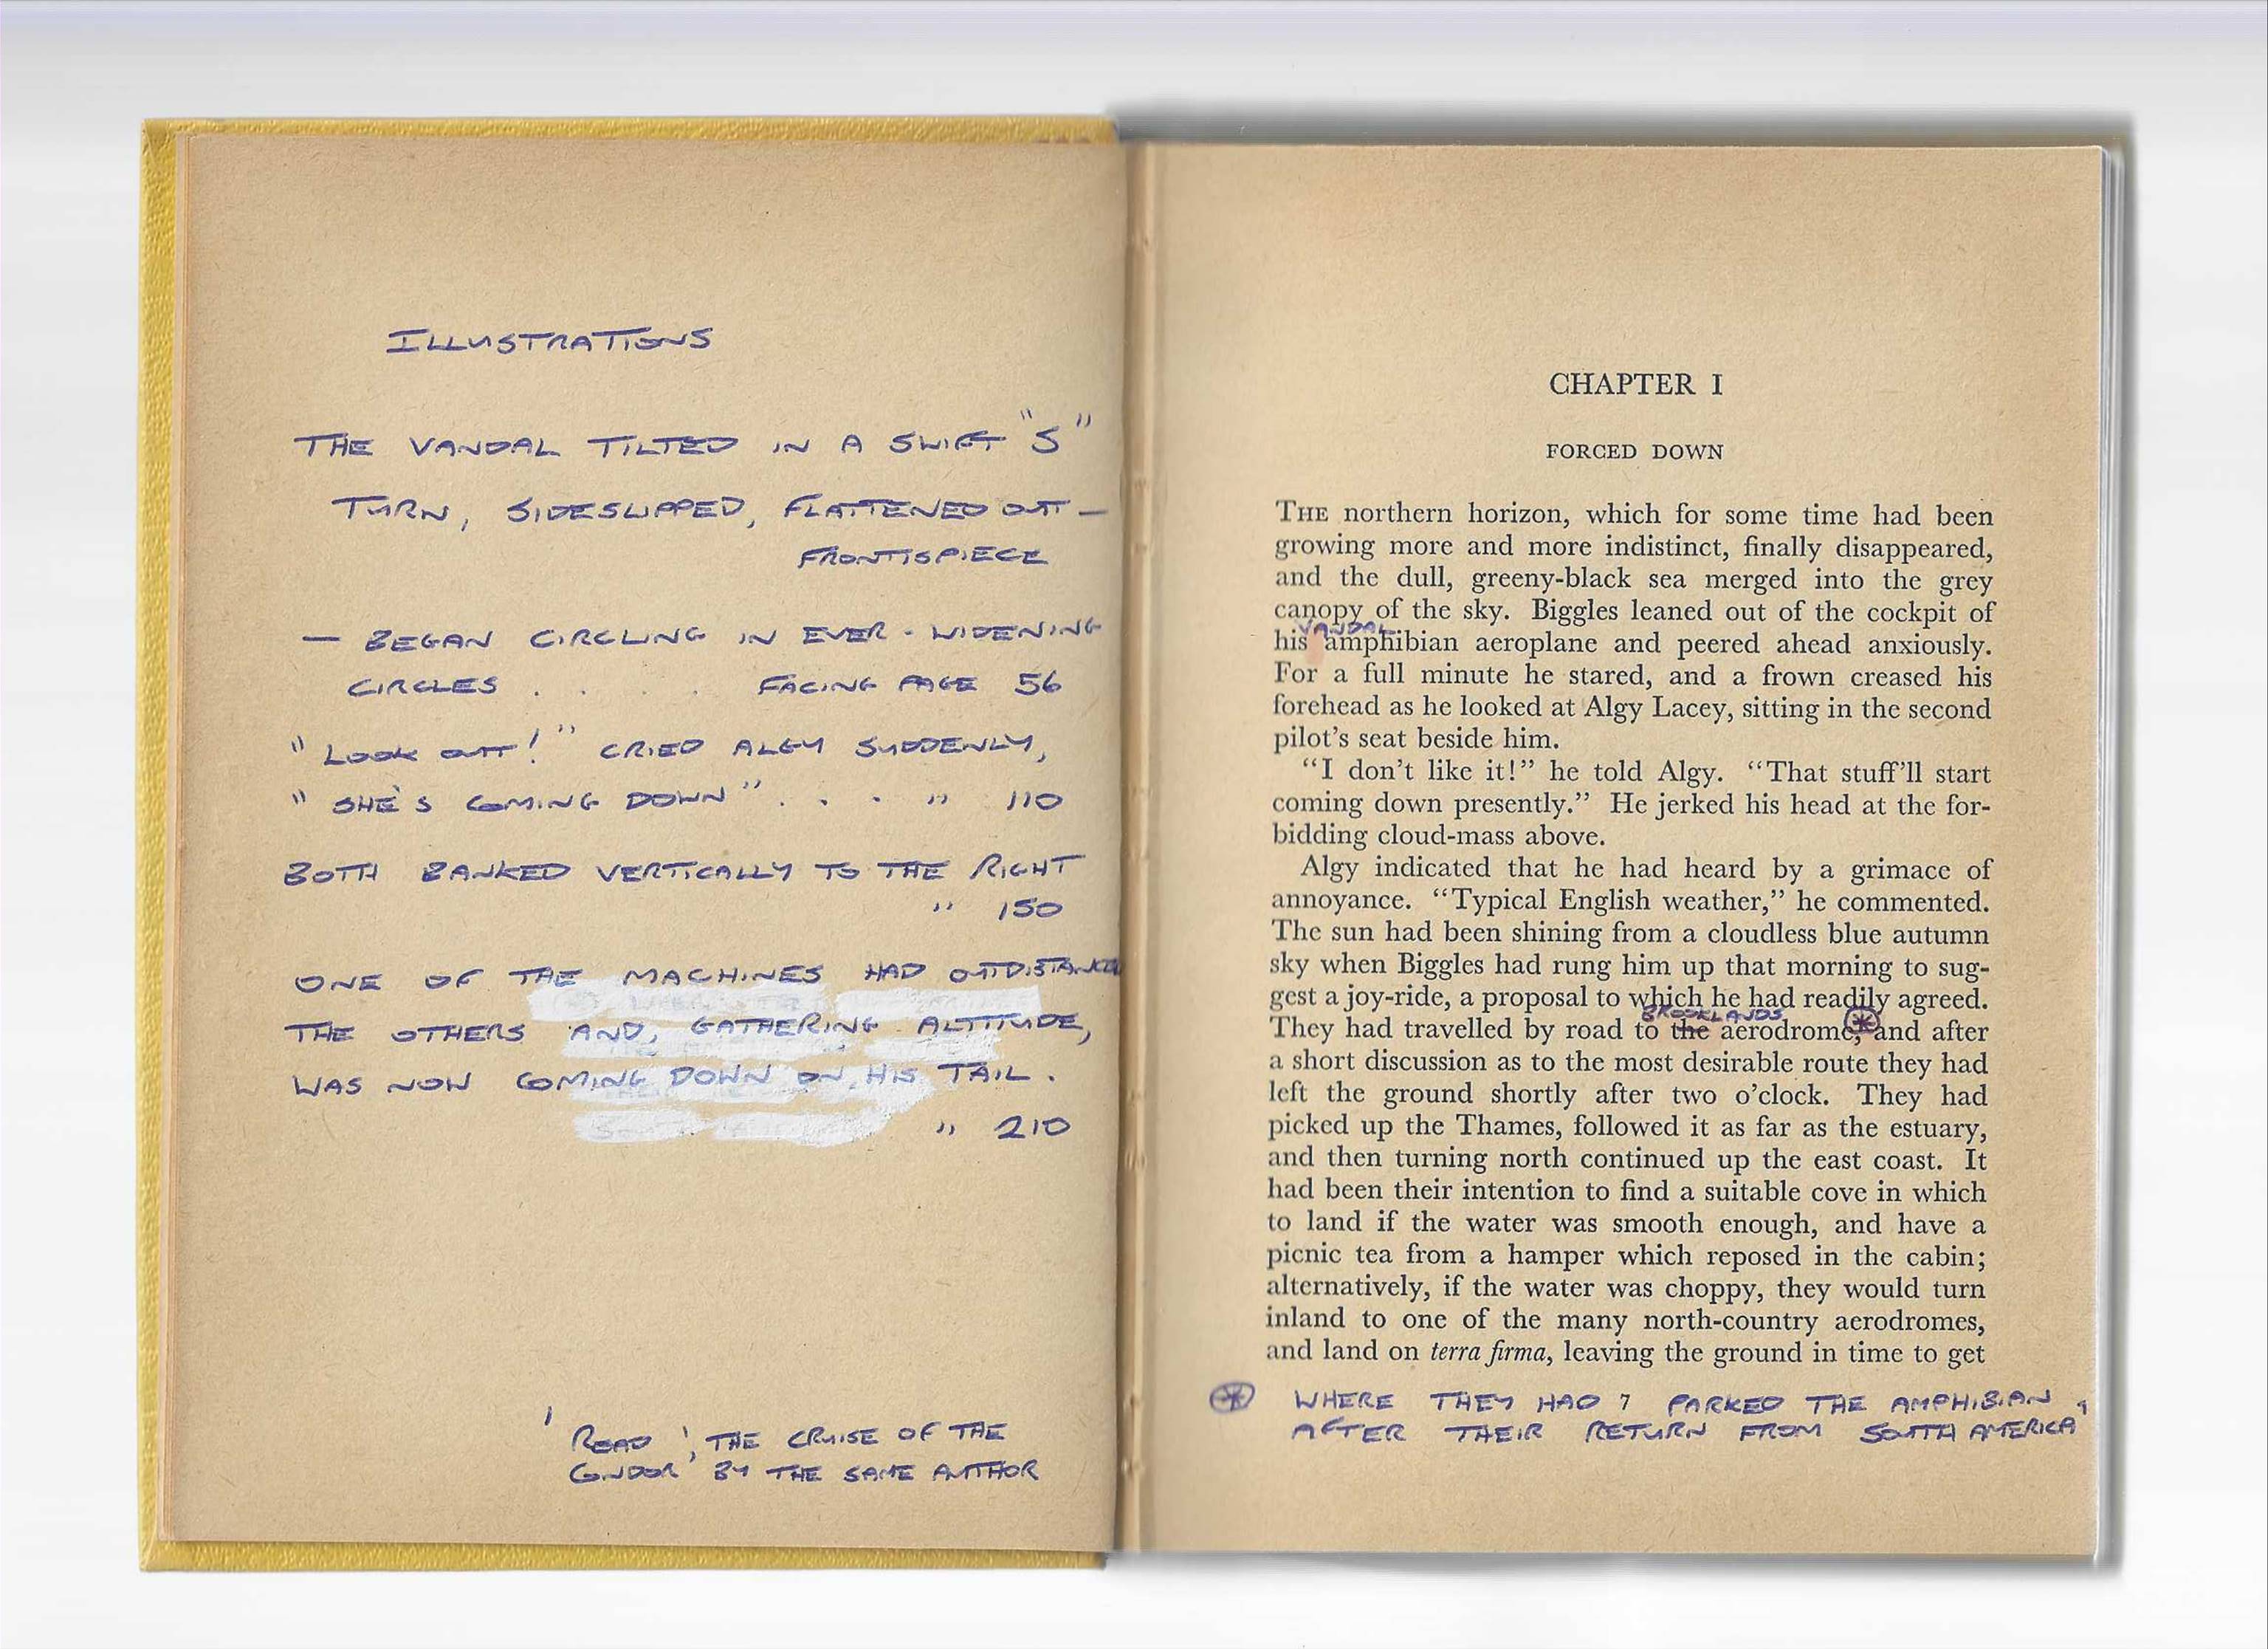 ILLUSTRATIONS
THE VANDAL TILTED IN A SWIFT "S"
TURN, SIDESLIPPED, FLATTENED OUT —
FRONTISPIECE
— BEGAN CIRCLING IN EVER-WIDENING
CIRCLES . . . . FACING PAGE 56
"LOOK OUT!" CRIED ALGY SUDDENLY,
"SHE'S COMING DOWN" . . . " 110
BOTH BANKED VERTICALLY TO THE RIGHT
" 150
ONE OF THE MACHINES HAD OUTDISTANCED
THE OTHERS AND, GATHERING ALTITUDE,
WAS NOW COMING DOWN ON HIS TAIL.
" 210
' READ ', THE CRUISE OF THE
CONDOR' BY THE SAME AUTHOR
CHAPTER I
FORCED DOWN
THE northern horizon, which for some time had been
growing more and more indistinct, finally disappeared,
and the dull, greeny-black sea merged into the grey
canopy of the sky. Biggles leaned out of the cockpit of
VANDAL
his amphibian aeroplane and peered ahead anxiously.
For a full minute he stared, and a frown creased his
forehead as he looked at Algy Lacey, sitting in the second
pilot's seat beside him.
"I don't like it!" he told Algy. "That stuff'll start
coming down presently." He jerked his head at the for-
bidding cloud-mass above.
Algy indicated that he had heard by a grimace of
annoyance. "Typical English weather," he commented.
The sun had been shining from a cloudless blue autumn
sky when Biggles had rung him up that morning to sug-
gest a joy-ride, a proposal to which he had readily agreed.
BROOKLANDS
They had travelled by road to the aerodrome, * and after
a short discussion as to the most desirable route they had
left the ground shortly after two o'clock. They had
picked up the Thames, followed it as far as the estuary,
and then turning north continued up the east coast. It
had been their intention to find a suitable cove in which
to land if the water was smooth enough, and have a
picnic tea from a hamper which reposed in the cabin;
alternatively, if the water was choppy, they would turn
inland to one of the many north-country aerodromes,
and land on terra firma, leaving the ground in time to get
* WHERE THEY HAD PARKED THE AMPHIBIAN,
AFTER THEIR RETURN FROM SOUTH AMERICA